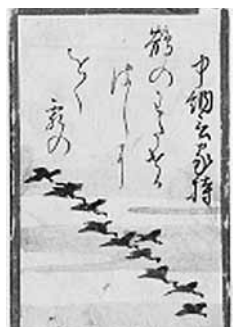 中納言家持
鵲のわたせる
はしに
をく
霜の